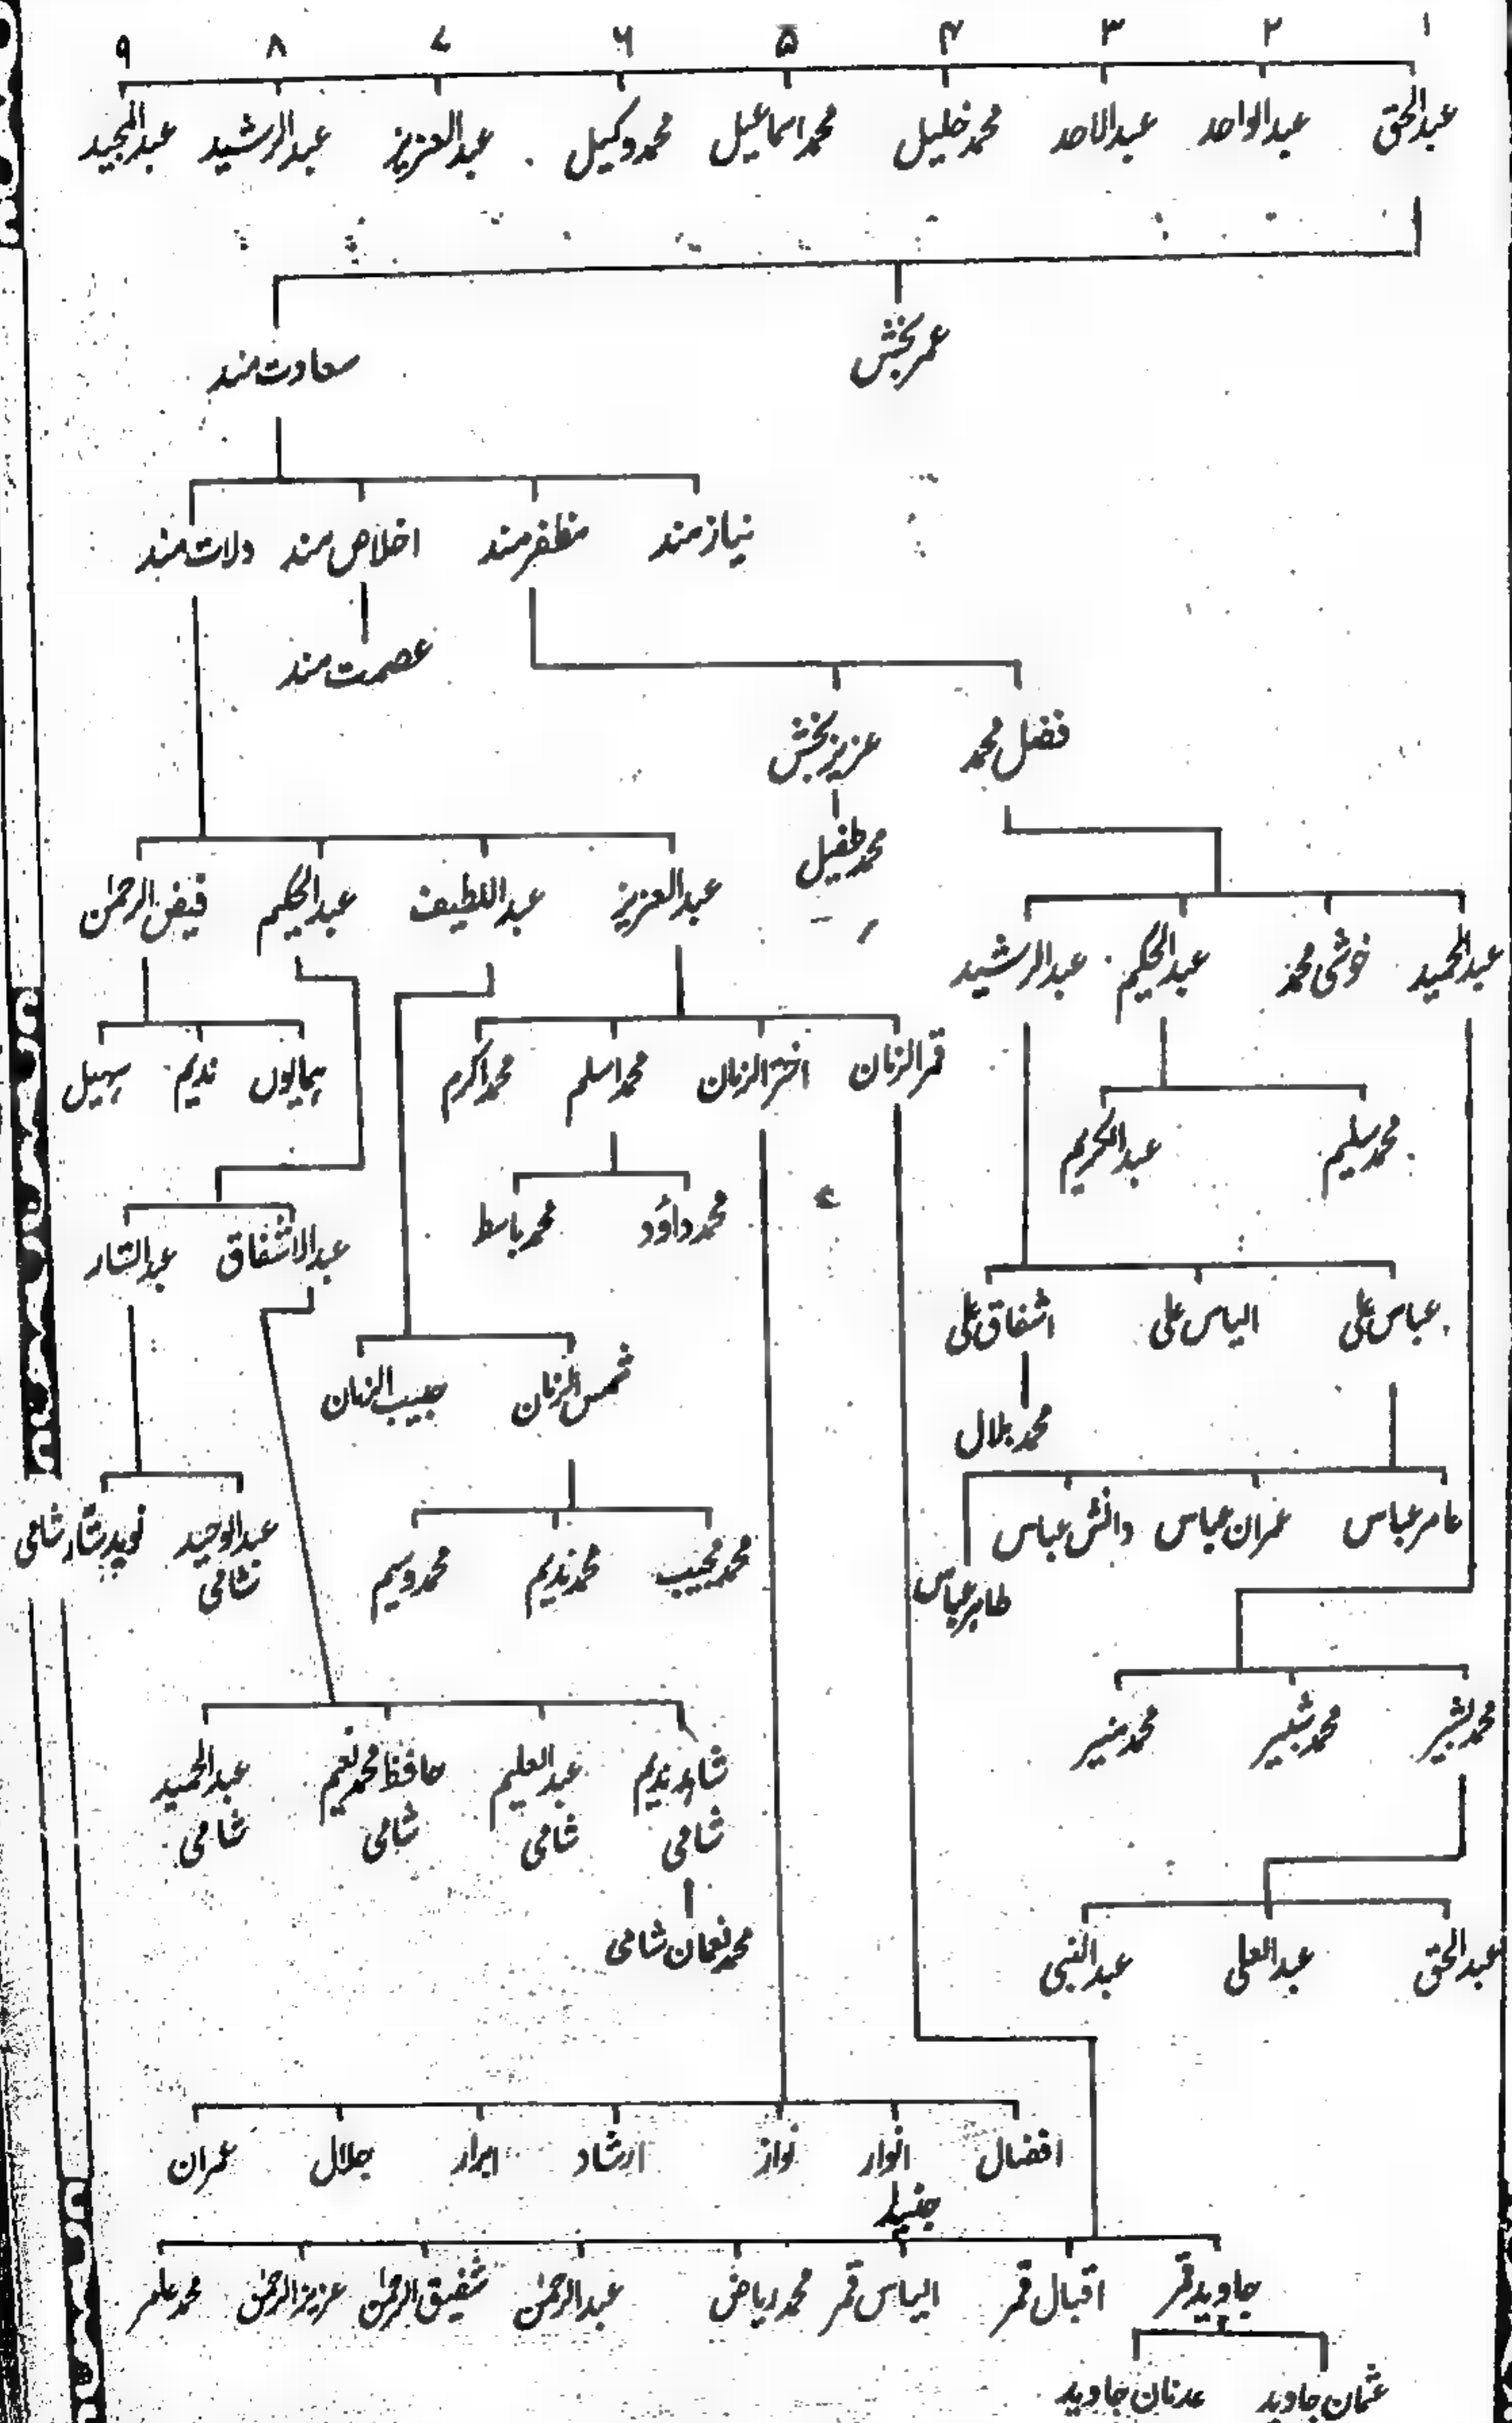 ۱ ۲ ۳ ۴ ۵ ۶ ۷ ۸ ۹
عبدالحق عبدالواحد عبدالاحد محمد خلیل محمد اسماعیل محمد وکیل عبدالعزیز عبدالرشید عبدالمجید
عمر بخش سعادت مند
نیاز مند مظفر مند اخلاص مند دلات مند
عصمت مند
فضل محمد عزیز بخش
محمد طفیل
عبدالعزیز عبداللطیف عبدالحکیم فیض الرحمٰن
عبدالحمید خوشی محمد عبدالحکیم عبدالرشید
قمرالزمان اخترالزمان محمد اسلم محمد اکرم ہمایوں ندیم سہیل
محمد سلیم عبدالکریم
محمد داؤد محمد باسط عبدالاشفاق عبدالستار
عباس علی الیاس علی اشفاق علی
شمس الزمان حبیب الزمان
محمد بلال
عامر عباس عمران عباس دانش عباس
طاہر عباس
محمد مجیب محمد ندیم محمد وسیم عبدالوحید نوید ستار شامی
شامی
محمد بشیر محمد شبیر محمد منیر
شاہد ندیم عبدالعلیم حافظ محمد نعیم عبدالحمید
شامی شامی شامی شامی
محمد نعمان شامی
عبدالحق عبدالعلی عبدالنبی
افضال انوار نواز ارشاد ابرار جلال عمران
جنید
جاوید قمر اقبال قمر الیاس قمر محمد ریاض عبدالرحمٰن شفیق الرحمٰن عزیزالرحمٰن محمد عامر
عثمان جاوید عدنان جاوید